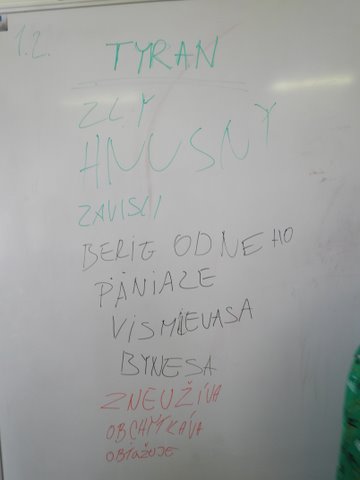 1.2.
TYRAN
ZLY
HNUSNÝ
ZAVISŤI
BERIE ODNEHO
PÄNIAZE
VISMIEVASA
BYNESA
ZNEUŽÍVA
OBCHYTKÁVA
OBŤAŽUJE